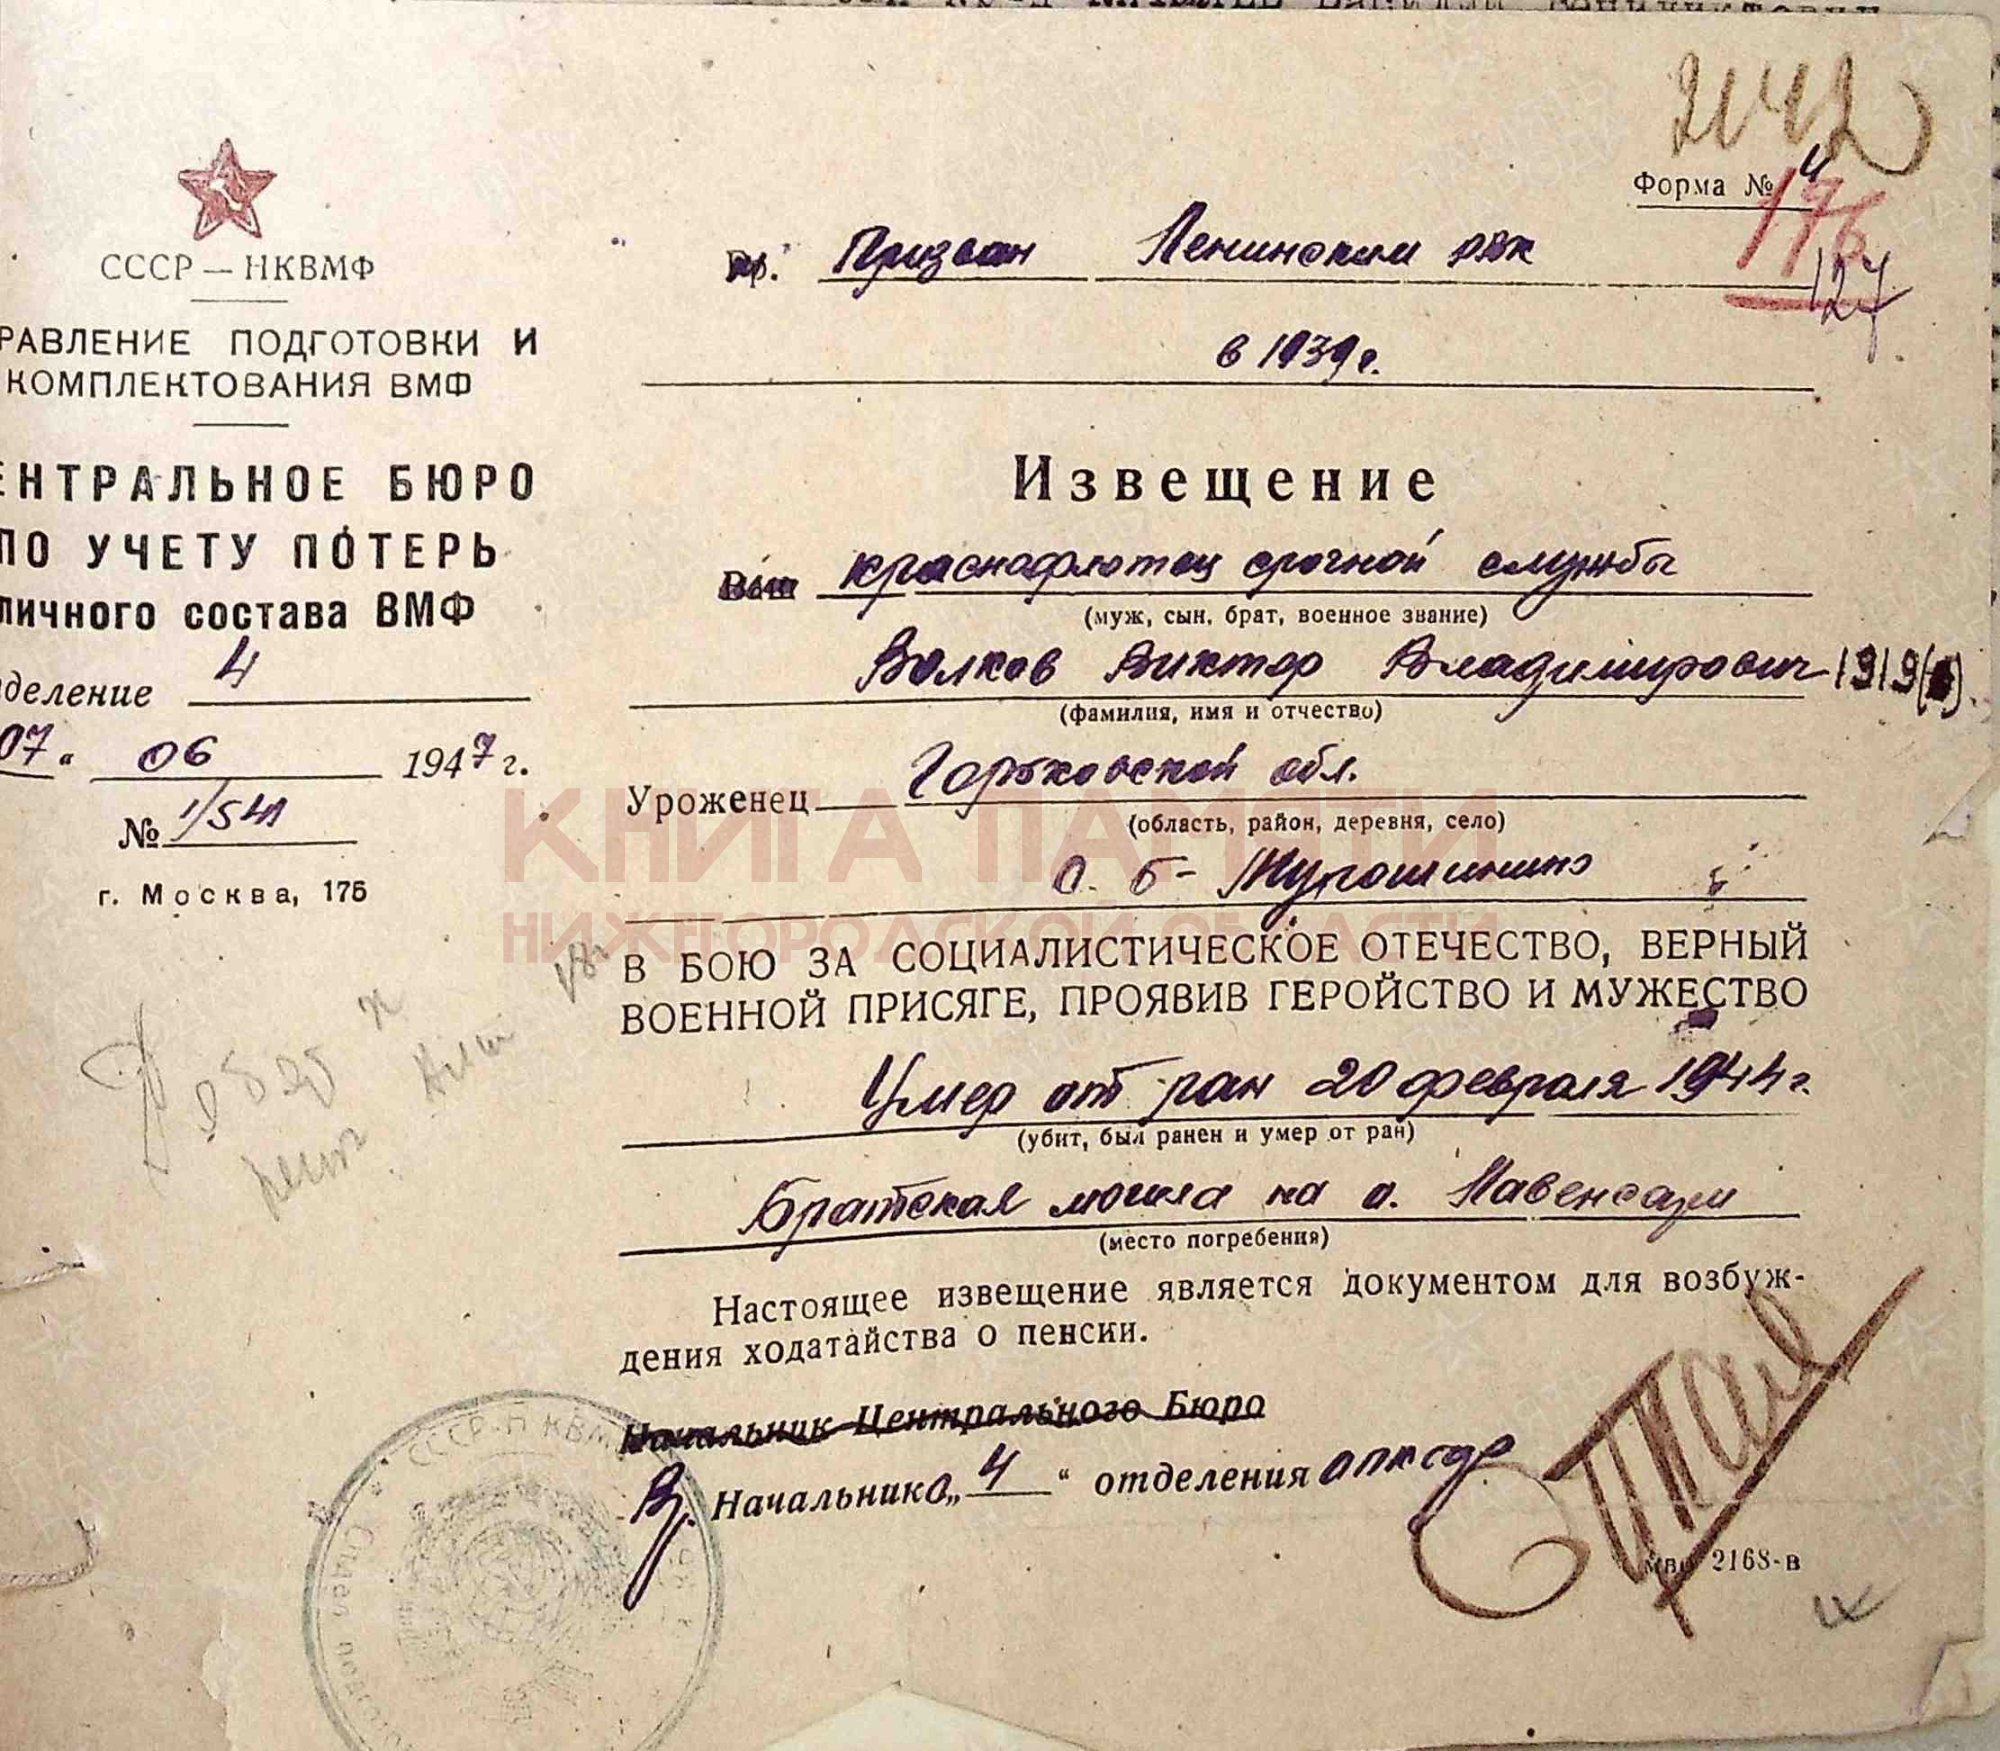 2142
СССР — НКВМФ
РАВЛЕНИЕ ПОДГОТОВКИ И
КОМПЛЕКТОВАНИЯ ВМФ
ЕНТРАЛЬНОЕ БЮРО
ПО УЧЕТУ ПОТЕРЬ
личного состава ВМФ
деление 4
07 " 06 1947 г.
№ 1/541
г. Москва, 175
Форма № 4
176
127
Призван Ленинским рвк
в 1939 г.
Извещение
Ваш краснофлотец срочной службы
(муж, сын, брат, военное звание)
Волков Виктор Владимирович 1919
(фамилия, имя и отчество)
Уроженец Горьковской обл.
(область, район, деревня, село)
с. Б-Мурашкино
В БОЮ ЗА СОЦИАЛИСТИЧЕСКОЕ ОТЕЧЕСТВО, ВЕРНЫЙ
ВОЕННОЙ ПРИСЯГЕ, ПРОЯВИВ ГЕРОЙСТВО И МУЖЕСТВО
Умер от ран 20 февраля 1944 г.
(убит, был ранен и умер от ран)
Братская могила на о. Лавенсари
(место погребения)
Настоящее извещение является документом для возбуж-
дения ходатайства о пенсии.
Начальник Центрального Бюро
Вр. Начальника „ 4 “ отделения
2168-в
КНИГА ПАМЯТИ
НИЖЕГОРОДСКОЙ ОБЛАСТИ